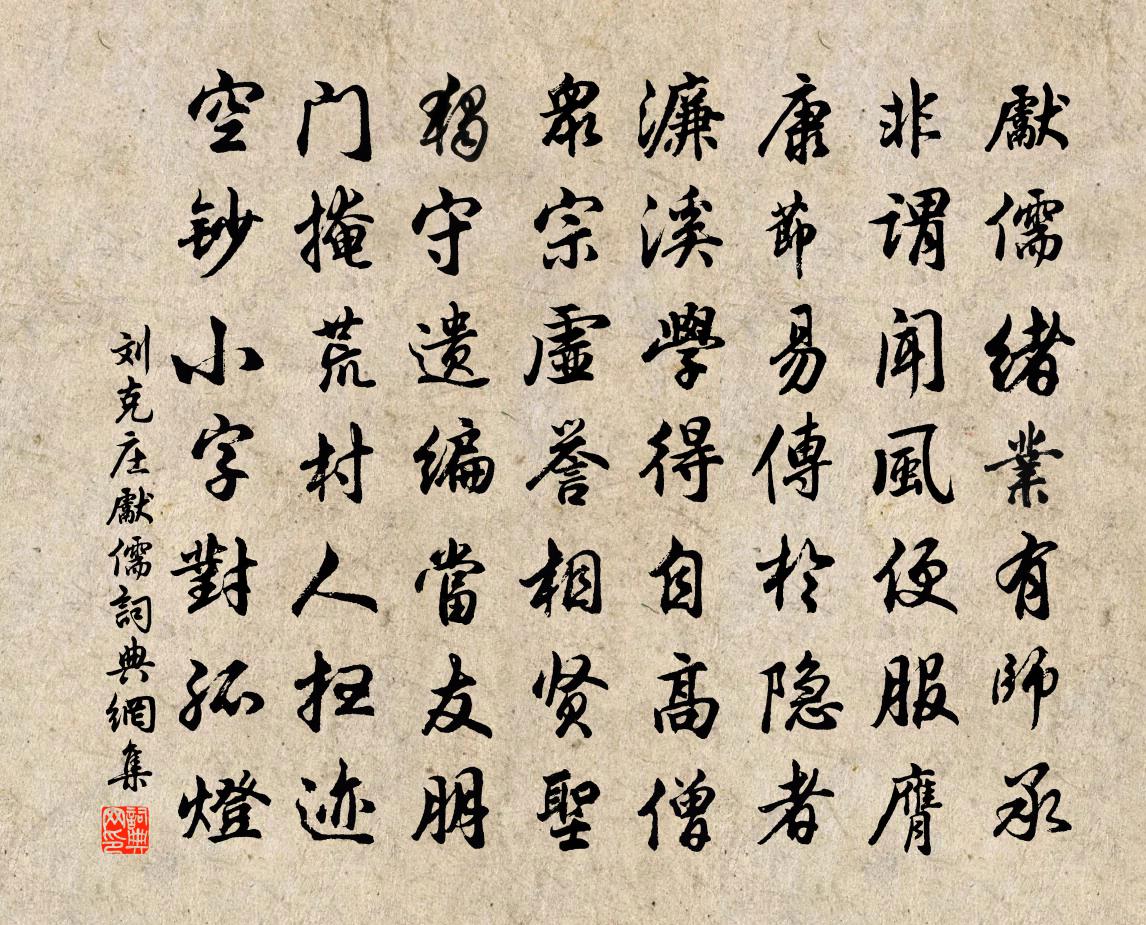 獻儒緒業有師承
非謂聞風便服膺
康節易傳於隐者
濂溪學得自高僧
衆宗虛譽相贤聖
獨守遗编當友朋
门掩荒村人扫迹
空鈔小字對孤燈
刘克庄獻儒詞典網集
詞典网印